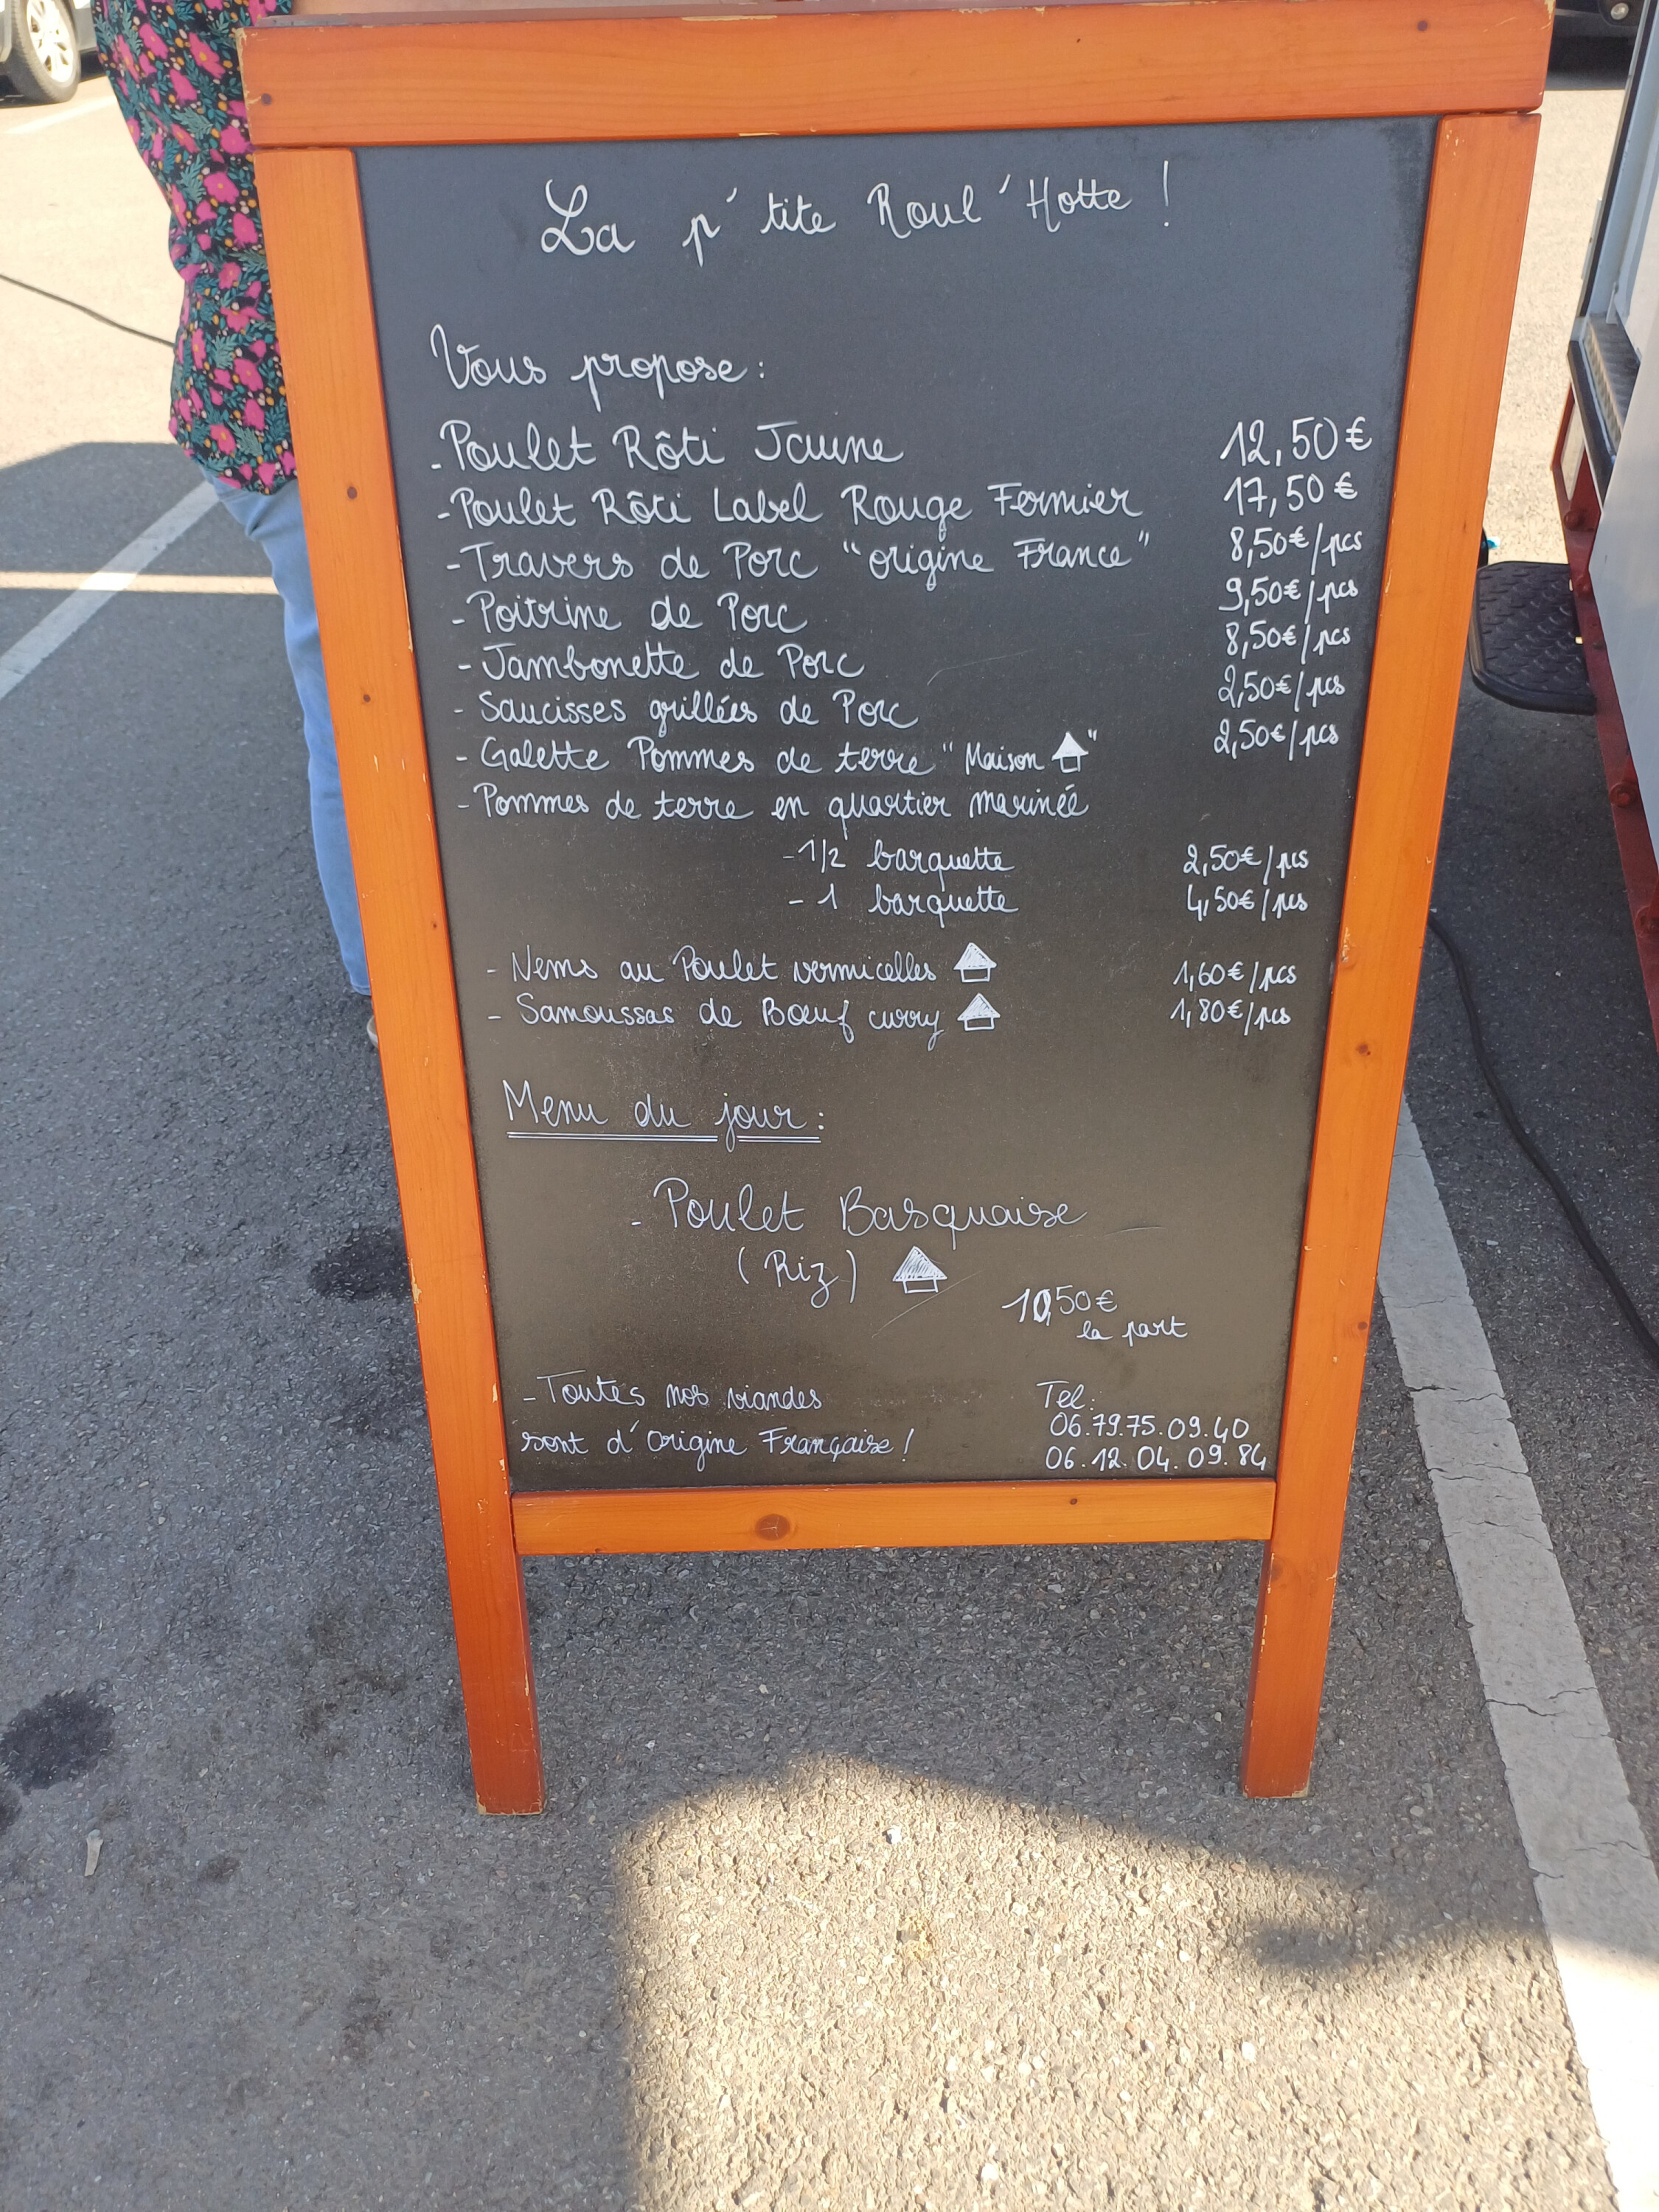 La p'tite Roul'Hotte !
Vous propose :
- Poulet Rôti Jaune 12,50€
- Poulet Rôti Label Rouge Fermier 17,50€
- Travers de Porc "origine France" 8,50€/pcs
- Poitrine de Porc 9,50€/pcs
- Jambonette de Porc 8,50€/pcs
- Saucisses grillées de Porc 2,50€/pcs
- Galette Pommes de terre "Maison" 2,50€/pcs
- Pommes de terre en quartier marinée
- 1/2 barquette 2,50€/pcs
- 1 barquette 4,50€/pcs
- Nems au Poulet vermicelles 1,60€/pcs
- Samoussas de Bœuf curry 1,80€/pcs
Menu du jour :
- Poulet Basquaise
(Riz)
10,50€
la part
- Toutes nos viandes
sont d'origine Française !
Tel :
06.79.75.09.40
06.12.04.09.84